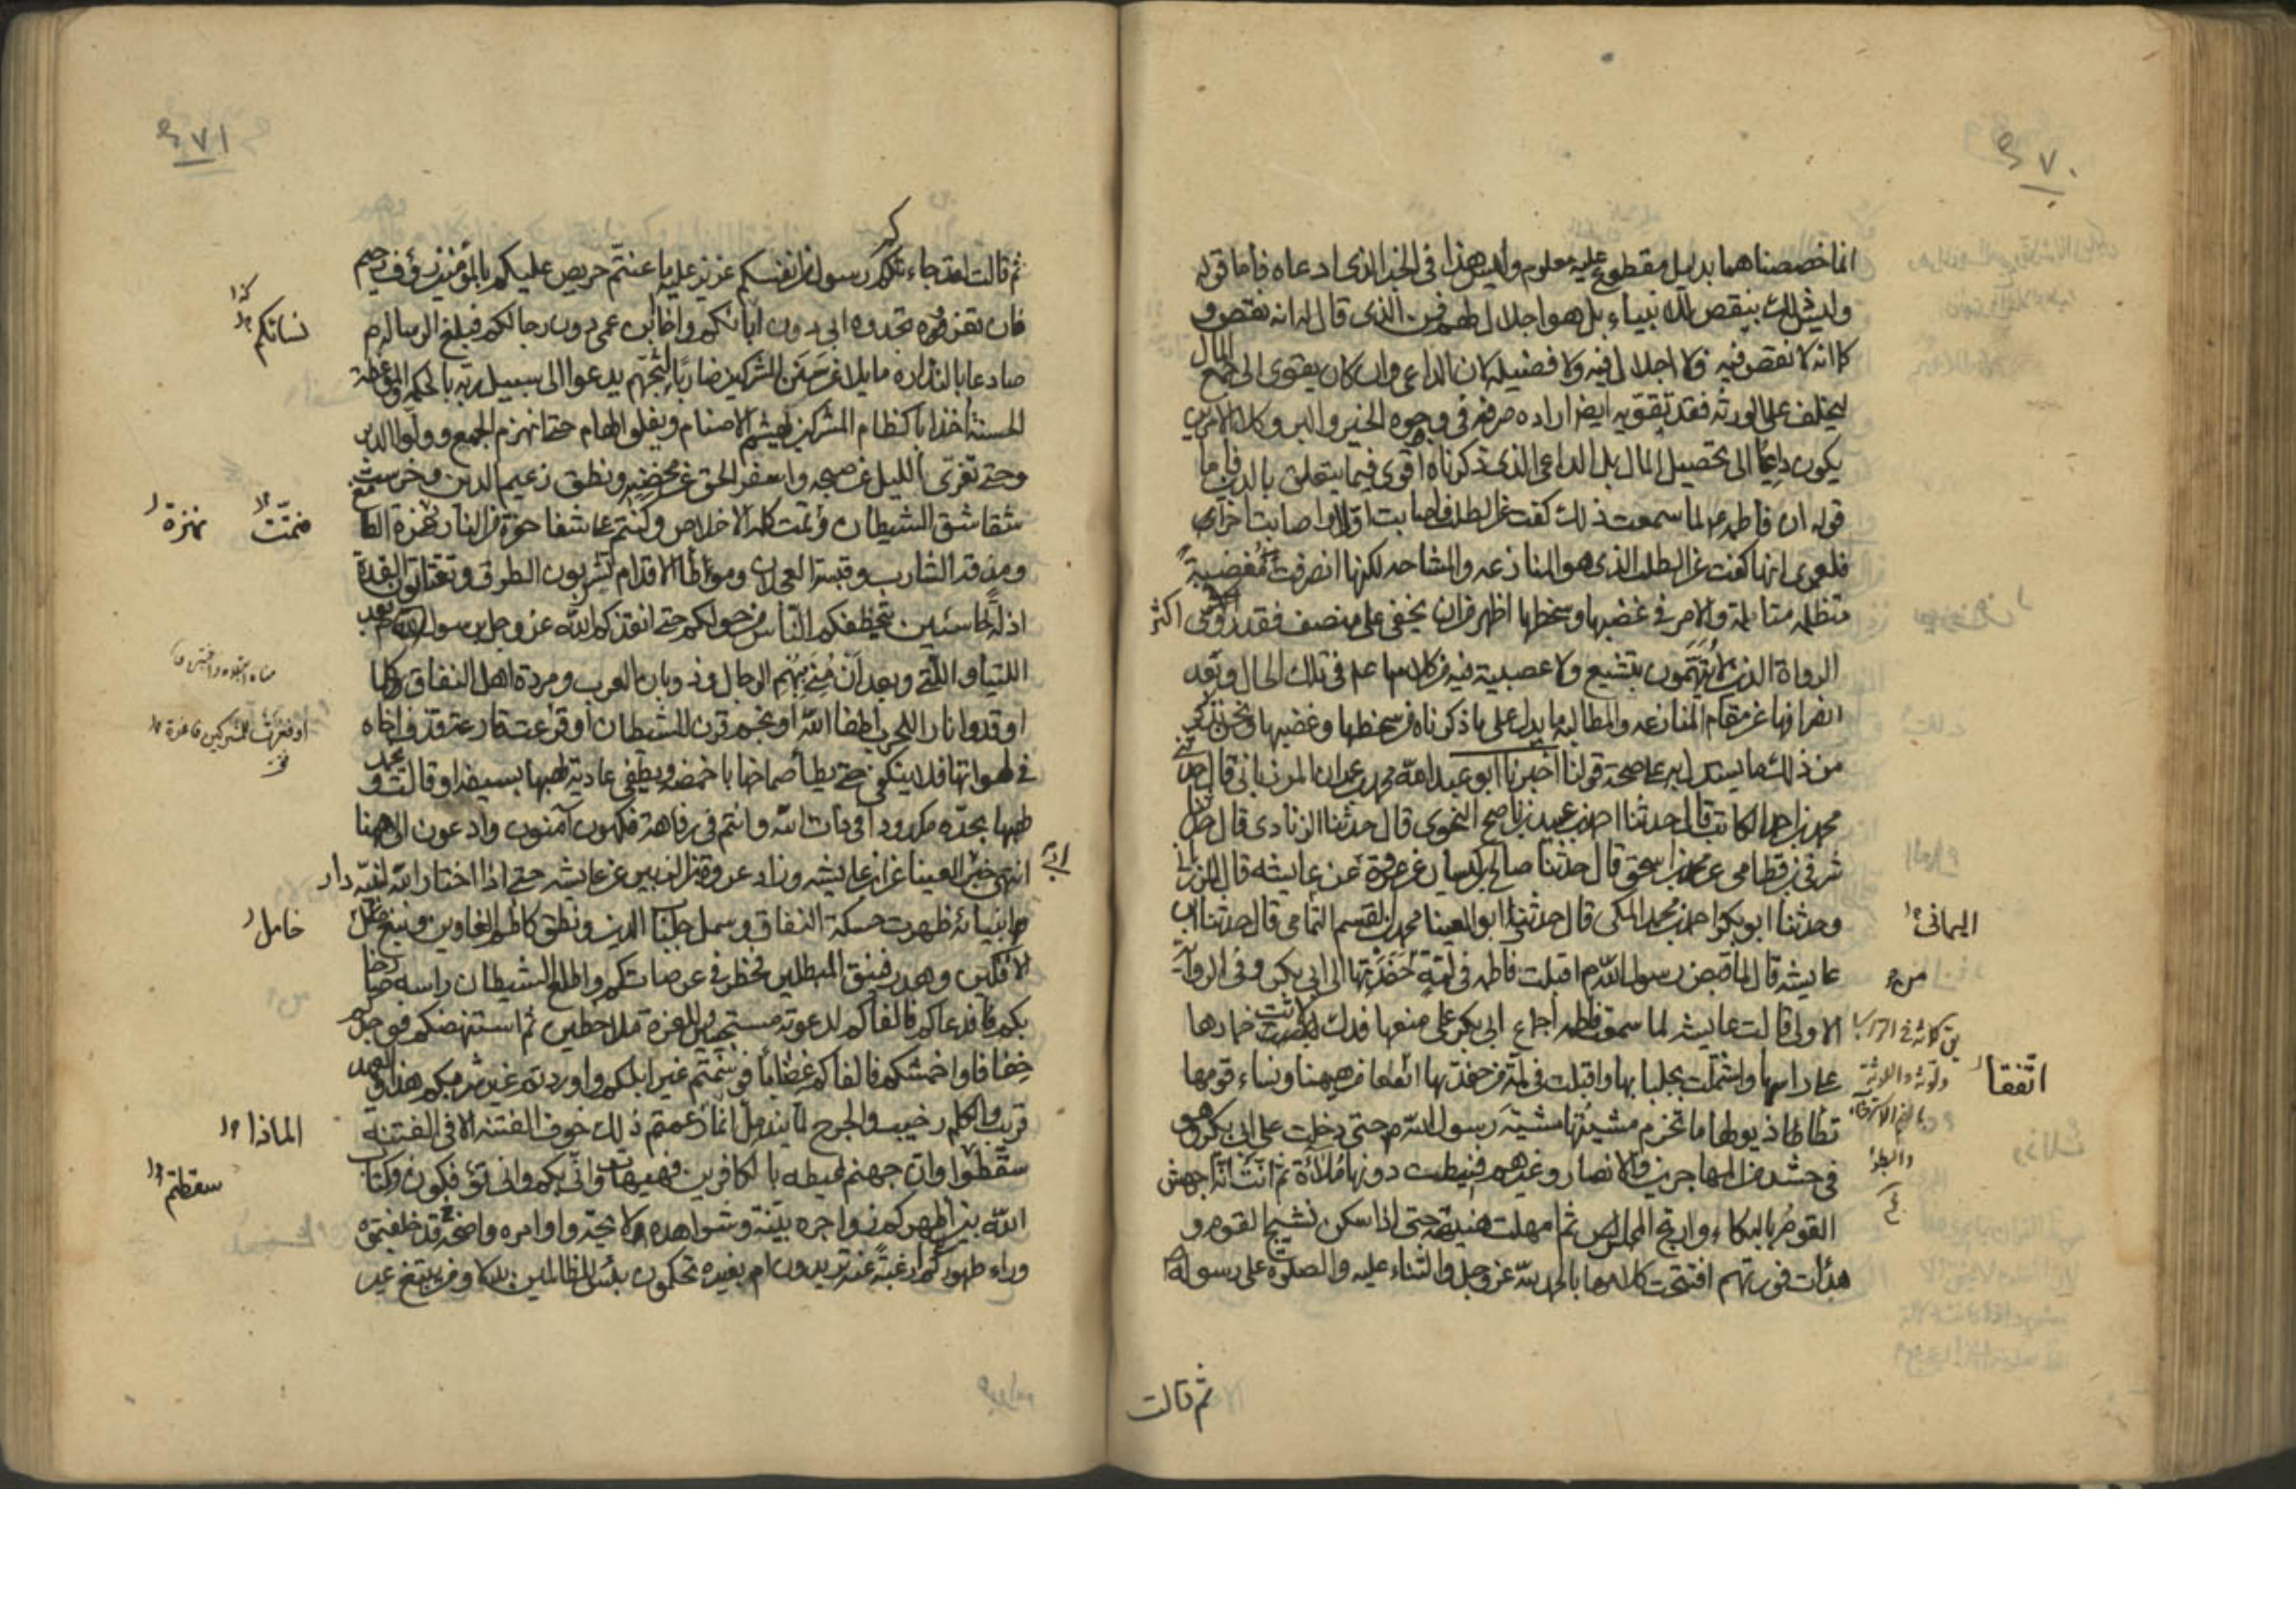 ٤٧٠
انما خصصناهما بدليل مقطوع عليه معلوم وليس هذا فى الخبر الذى ادعاه فأما قوله
وليس ذلك بنقص الانبياء بل هو اجلال لهم فمن الذى قال له انه نقص و
كما انه لا نقص فيه فلا اجلال فيه ولا فضيلة لان الداعى وان كان يقوى الى جمع المال
ليخلف على الورثة فقد يقويه ايضا ارادة صرفه فى وجوه الخير والبر وكلا الامرين
يكون داعيا الى تحصيل المال بل الداعى الذى ذكرناه اقوى فيما يتعلق بالدين فاما
قوله ان فاطمة ع لما سمعت ذلك كفت عن الطلب فاصابت اولا واصابت اخرا
فلعمرى انها كفت عن الطلب الذى هو المنازعه والمشاحه لكنها انصرفت مغضبة
متظلمه متألمة والامر فى غضبها وسخطها اظهر من ان يخفى على منصف فقد روى اكثر
الرواة الذين لا يتهمون بتشيع ولا عصبية فيه من كلامها ع فى تلك الحال وبعد
انصرافها عن مقام المنازعه والمطالبه ما يدل على ما ذكرناه من سخطها وغضبها ونحن نذكر
من ذلك ما يستدل به على صحة قولنا اخبرنا ابو عبد الله محمد بن عمران المرزبانى قال حدثنى
محمد بن احمد الكاتب قال حدثنا احمد بن عبيد بن ناصح النحوى قال حدثنا الزيادى قال حدثنا
شرقى بن قطامى عن محمد بن اسحق قال حدثنا صالح بن كيسان عن عروة عن عايشه قال المرزبانى
وحدثنا ابو بكر احمد بن محمد المكى قال حدثنا ابو العينا محمد بن القسم اليمامى قال حدثنا ابن
اليمانى
عايشه قال لما قبض رسول الله ص اقبلت فاطمه فى لمة من حفدتها الى ابى بكر وفى الرواية
الاولى قالت عايشه لما سمعت فاطمه اجماع ابى بكر على منعها فدك لاثت خمارها
على راسها واشتملت بجلبابها واقبلت فى لمة من حفدتها اتفقا من هيهنا ونساء قومها
اتفقا
تطأ ذيولها ما تخرم مشيتها مشية رسول الله ص حتى دخلت على ابى بكر وهو
فى حشد من المهاجرين والانصار وغيرهم فنيطت دونها ملاءة ثم انّت انّة اجهش
القوم بالبكاء وارتج المجلس ثم امهلت هنيهة حتى اذا سكن نشيج القوم و
هدأت فورتهم افتتحت كلامها بالحمد لله عز وجل والثناء عليه والصلوة على رسوله ص
ثم قالت
٤٧١
ثم قالت لقد جاءكم رسول من انفسكم عزيز عليه ما عنتم حريص عليكم بالمؤمنين رؤف رحيم
فان تعزوه تجدوه ابى دون ابائكم واخا ابن عمى دون رجالكم فبلغ الرسالة
نسائكم
صادعا بالنذاره مايلا عن سنن المشركين ضاربا ثبجهم يدعوا الى سبيل ربه بالحكمة والموعظة
الحسنة اخذا باكظام المشركين يهشم الاصنام ويفلق الهام حتى انهزم الجمع وولوا الدبر
وحتى تفرى الليل عن صبحه واسفر الحق عن محضه ونطق زعيم الدين وخرست
شقاشق الشيطان وتمت كلمة الاخلاص وكنتم على شفا حفرة من النار نهزة الطامع
نهزة
ومذقة الشارب وقبسة العجلان وموطأ الاقدام تشربون الطرق وتقتاتون القد
اذلة خاسئين يتخطفكم الناس من حولكم حتى انقذكم الله عز وجل برسوله ص بعد
اللتيا والتى وبعد ان منى ببهم الرجال وذوبان العرب ومردة اهل النفاق كلما
اوقدوا نارا للحرب اطفأها الله او نجم قرن للشيطان او فغرت فاغرة قذف اخاه
فى لهواتها فلا ينكفى حتى يطأ صماخها باخمصه ويطفى عادية لهبها بسيفه او قالت و
لهبها بحده مكدودا فى ذات الله وانتم فى رفاهة فكهون آمنون وادعون الى هيهنا
انتهى خبر ابى العينا عن ابن عايشه وزاد عروة بن الزبير عن عايشه حتى اذا اختار الله لنبيه دار
انبيائه ظهرت حسكة النفاق وسمل جلباب الدين ونطق كاظم الغاوين ونبغ خامل
خامل
الافكين وهدر فنيق المبطلين فخطر فى عرصاتكم واطلع الشيطان راسه صارخا
بكم فدعاكم فالفاكم لدعوته مستجيبين وللغرة ملاحظين ثم استنهضكم فوجدكم
خفافا واحمشكم فالفاكم غضابا فوسمتم غير ابلكم واوردتم غير شربكم هذا والعهد
قريب والكلم رحيب والجرح لما يندمل انما زعمتم ذلك خوف الفتنة الا فى الفتنة
سقطوا وان جهنم لمحيطه بالكافرين فهيهات وانى بكم وانى تؤفكون وكتاب
سقطتم
الله بين اظهركم زواجره بينة وشواهده لايحة واوامره واضحة قد خلفتموه
وراء ظهوركم ارغبة عنه تريدون ام بغيره تحكمون بئس للظالمين بدلا ومن يبتغ غير